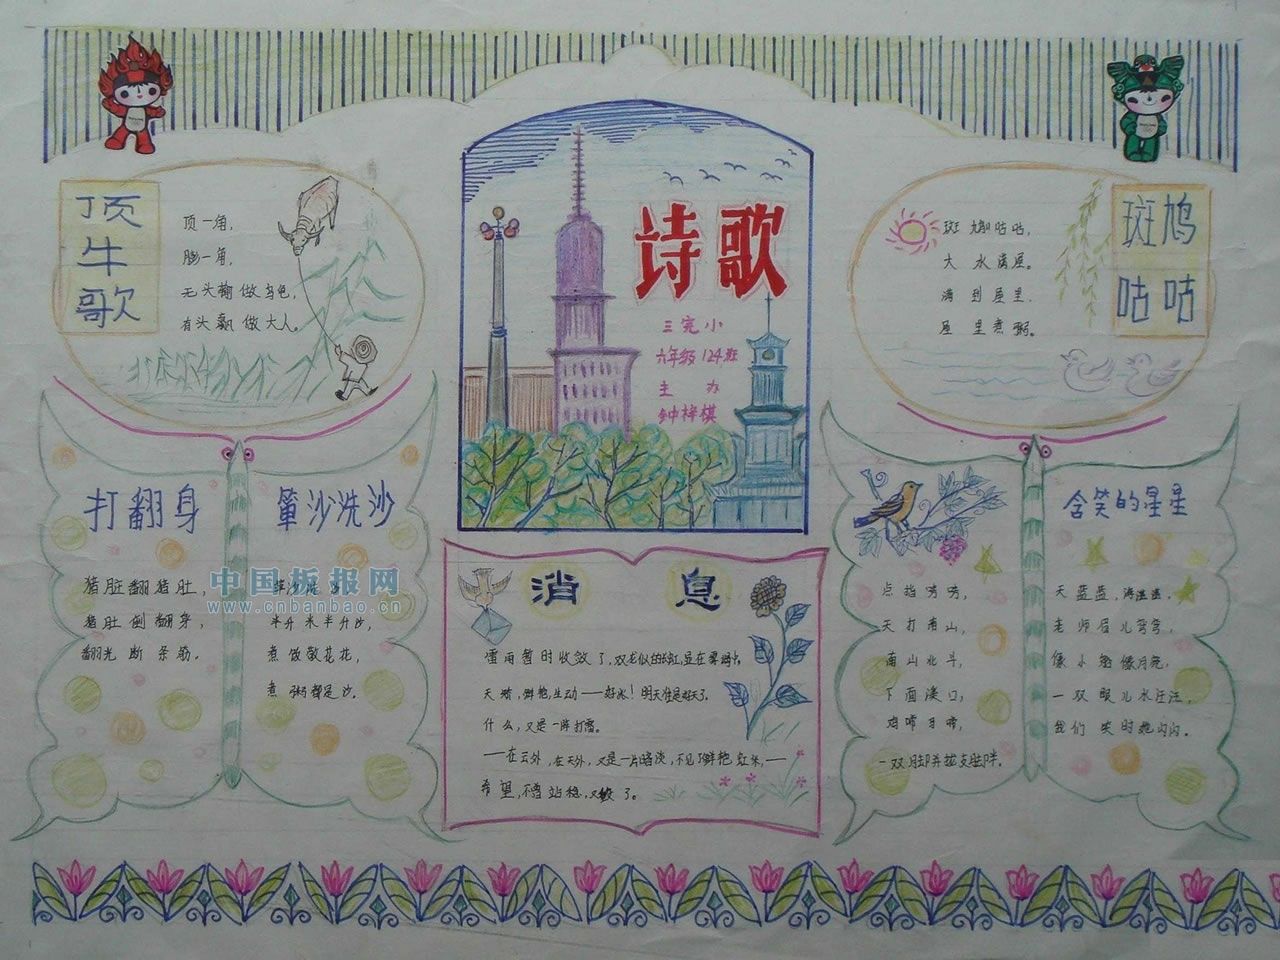 顶牛歌
顶一角,
无头输做乌龟,
有头赢做大人。
诗歌
三完小
六年级124班
主办
钟梓棋
斑鸠咕咕
斑鸠咕咕,
大水满屋。
满到屋里,
屋里煮粥。
打翻身
猪肚翻猪肚,
猪肚倒翻身,
翻光断条筋。
箪沙洗沙
半升米半升沙,
煮饭散花花,
煮粥都是沙。
中国板报网
www.cnbanbao.cn
消息
雷雨暂时收敛了,双龙似的长虹,显在雾端,
天晴,鲜艳,生动——好冰!明天准是好天了。
什么,又是一阵打雷。
——在云外,在天外,又是一片暗淡,不见了鲜艳虹采,——
希望,不曾站稳,又毁了。
含笑的星星
点挡唠唠,
天打南山,
南山北斗,
下面溇口,
一双脚并拉支脏胖。
天蓝蓝,海
老师眉儿弯弯,
像小船像月亮,
一双眼儿水汪汪,
我们